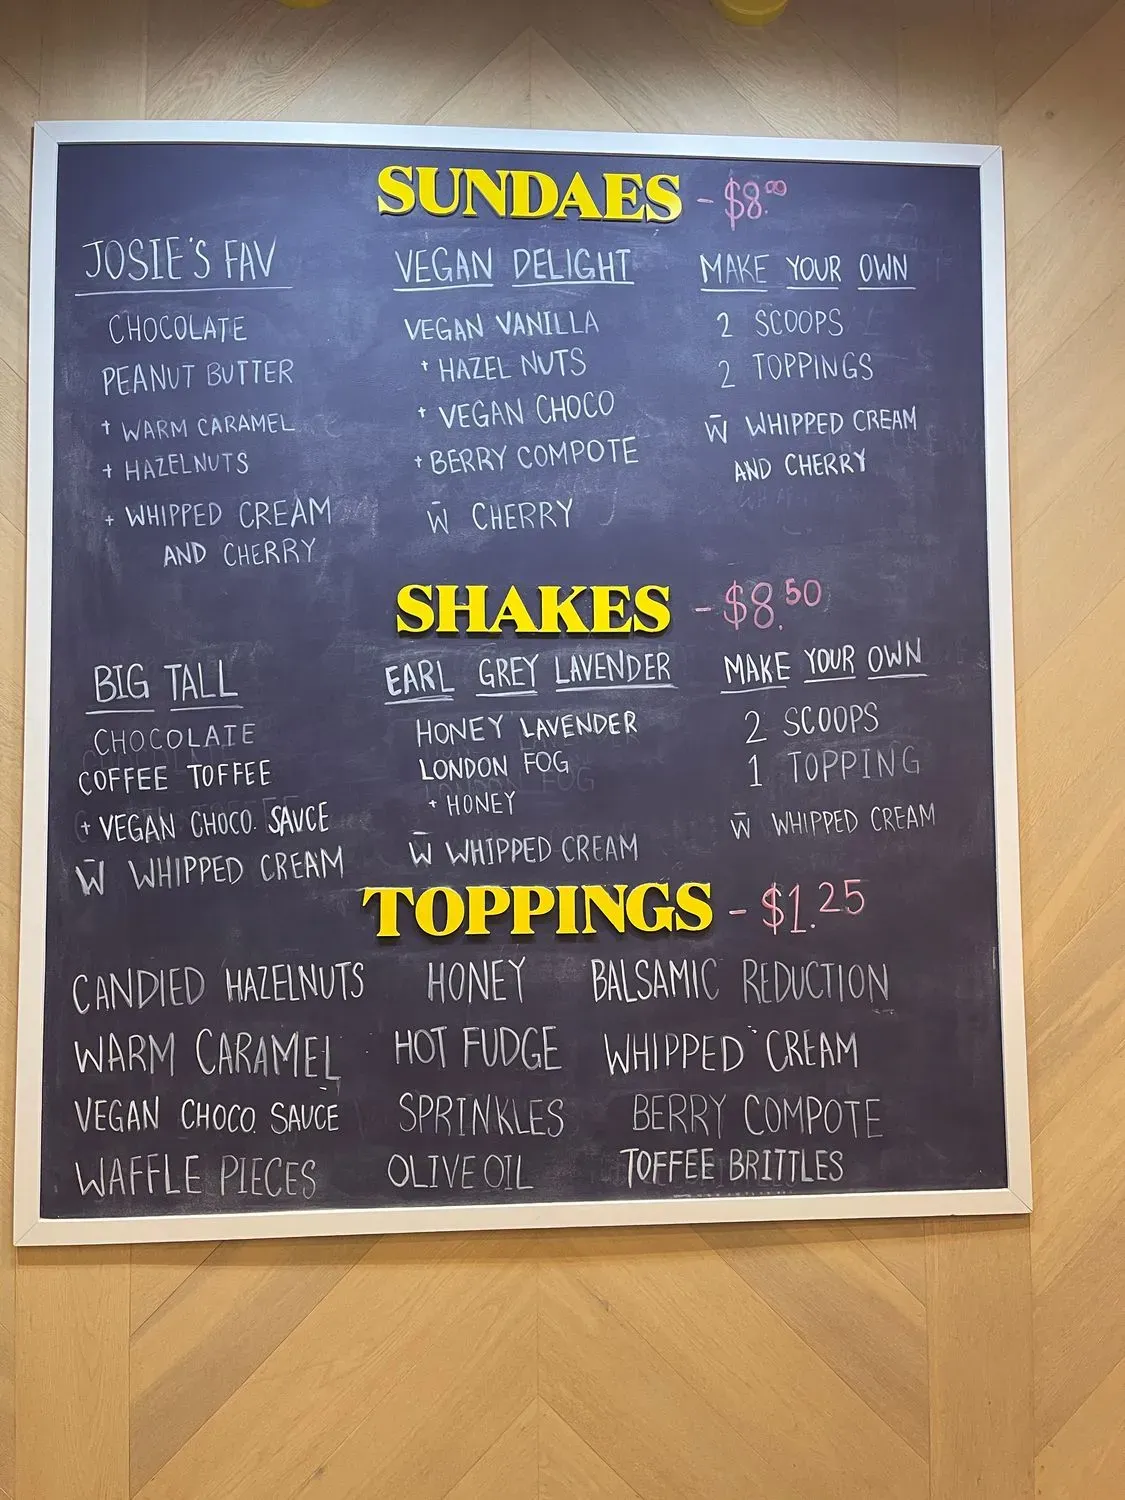 SUNDAES - $8.00
JOSIE'S FAV
CHOCOLATE
PEANUT BUTTER
+ WARM CARAMEL
+ HAZELNUTS
+ WHIPPED CREAM
AND CHERRY
VEGAN DELIGHT
VEGAN VANILLA
+ HAZEL NUTS
+ VEGAN CHOCO
+ BERRY COMPOTE
W̄ CHERRY
MAKE YOUR OWN
2 SCOOPS
2 TOPPINGS
W̄ WHIPPED CREAM
AND CHERRY
SHAKES - $8.50
BIG TALL
CHOCOLATE
COFFEE TOFFEE
+ VEGAN CHOCO. SAUCE
W̄ WHIPPED CREAM
EARL GREY LAVENDER
HONEY LAVENDER
LONDON FOG
+ HONEY
W̄ WHIPPED CREAM
MAKE YOUR OWN
2 SCOOPS
1 TOPPING
W̄ WHIPPED CREAM
TOPPINGS - $1.25
CANDIED HAZELNUTS
WARM CARAMEL
VEGAN CHOCO. SAUCE
WAFFLE PIECES
HONEY
HOT FUDGE
SPRINKLES
OLIVE OIL
BALSAMIC REDUCTION
WHIPPED CREAM
BERRY COMPOTE
TOFFEE BRITTLES